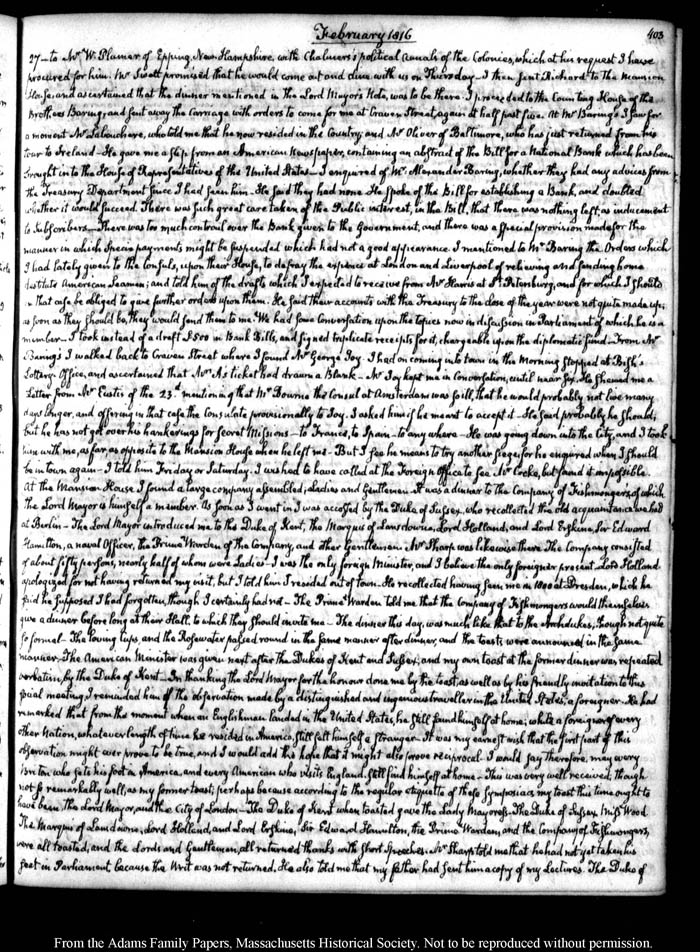 February 1816
403
27 – to Mr. W. Plumer of Epping, New-Hampshire, with Chalmers's political Annals of the Colonies, which at his request I have
procured for him. Mr Swett promised that he would come out and dine with us on Thursday – I then sent Richard to the Mansion
House, and ascertained that the dinner mentioned in the Lord Mayor's Note, was to be there. I proceeded to the Counting House of the
Brothers Baring; and sent away the Carriage with orders to come for me at Craven Street, again at half past five. At Mr Baring's I saw for
a moment Mr Labouchere, who told me that he now resided in the Country; and Mr Oliver of Baltimore, who has just returned from his
tour to Ireland – He gave me a slip from an American Newspaper, containing an abstract of the Bill for a National Bank which has been
brought into the House of Representatives of the United States – I enquired of Mr Alexander Baring, whether they had any advices from
the Treasury Department since I had seen him. He said they had none. He spoke of the Bill for establishing a Bank, and doubted
whether it would succeed. There was such great care taken of the Public interest, in the Bill, that there was nothing left, as inducement
to Subscribers – There was too much controul over the Bank given to the Government, and there was a special provision made for the
manner in which Specie payments might be suspended which had not a good appearance. I mentioned to Mr Baring the Orders which
I had lately given to the Consuls, upon their House, to defray the expence at London and Liverpool of relieving and sending home
destitute American Seamen; and told him of the drafts which I expected to receive from Mr Harris at St. Petersburg, and for which I should
in that case be obliged to give further orders upon them. He said their accounts with the Treasury to the close of the year were not quite made up;
as soon as they should be, they would send them to me. We had some Conversation upon the topics now in discussion in Parliament of which he is a
member – I took instead of a draft £500 in Bank Bills, and signed triplicate receipts for it, chargeable upon the diplomatic fund – From Mr
Baring's I walked back to Craven Street where I found Mr George Joy. I had on coming into town in the Morning stopped at Bish's
Lottery-Office, and ascertained that Mr A's ticket had drawn a Blank – Mr Joy kept me in Conversation, until near six. He shewed me a
Letter from Mr Eustis of the 23d. mentioning that Mr Bourne the Consul at Amsterdam was so ill, that he would probably not live many
days longer, and offering in that case the Consulate provisionally to Joy. I asked him if he meant to accept it – He said probably he should;
but he has not got over his hankerings for secret Missions – to France, to Spain – to any where – He was going down into the City, and I took
him with me, as far as opposite to the Mansion House where he left me – But I see he means to try another siege, for he enquired when I should
be in town again – I told him Friday or Saturday. I wished to have called at the Foreign Office to see Mr Cooke, but found it impossible.
At the Mansion House I found a large company assembled; Ladies and Gentlemen. It was a dinner to the Company of Fishmongers, of which
the Lord Mayor is himself a member. As soon as I went in I was accosted by the Duke of Sussex, who recollected the old acquaintance we had
at Berlin – The Lord Mayor introduced me to the Duke of Kent, the Marquis of Lansdowne, Lord Holland, and Lord Erskine, Sir Edward
Hamilton, a naval Officer, the Prime Warden of the Company, and other Gentlemen. Mr Sharp was likewise there. The Company consisted
of about fifty persons, nearly half of whom were Ladies – I was the only foreign Minister, and I believe the only foreigner present. Lord Holland
apologized for not having returned my visit, but I told him I resided out of town. He recollected having seen me in 1800 at Dresden, which he
said he supposed I had forgotten, though I certainly had not – The Prime Warden told me that the Company of Fishmongers would themselves
give a dinner before long at their Hall, to which they should invite me – The dinner this day, was much like that to the Archdukes, though not quite
so formal – The loving cups, and the Rosewater passed round in the same manner after dinner, and the toasts were announced in the same
manner – The American Minister was given next after the Dukes of Kent and Sussex; and my own toast at the former dinner was repeated
verbatim, by the Duke of Kent – In thanking the Lord Mayor for the honour done me by the toast, as well as by his friendly invitation to this
social meeting, I reminded him of the observation made by a distinguished and ingenious traveller in the United States, a foreigner. He had
remarked that from the moment when an Englishman landed in the United States, he still found himself at home; while a foreigner of every
other Nation, whatever length of time he resided in America, still felt himself a stranger – It was my earnest wish that the first part of this
observation might ever prove to be true, and I would add the hope that it might also prove reciprocal. I would say therefore, may every
Briton who sets his foot in America, and every American who visits England, still find himself at home – This was very well received, though
not so remarkably well, as my former toast; perhaps because according to the regular etiquette of these Symposiacs, my toast this time ought to
have been the Lord Mayor, and the City of London – The Duke of Kent when toasted gave the Lady Mayoress – The Duke of Sussex Miss Wood
The Marquis of Lansdowne, Lord Holland, and Lord Erskine, Sir Edward Hamilton, the Prime Warden, and the Company of Fishmongers,
were all toasted, and the Lords and Gentlemen, all returned thanks with short Speeches. Mr Sharp told me that he had not yet taken his
seat in Parliament because the Writ was not returned. He also told me that my father had sent him a copy of my Lectures. The Duke of
From the Adams Family Papers, Massachusetts Historical Society. Not to be reproduced without permission.